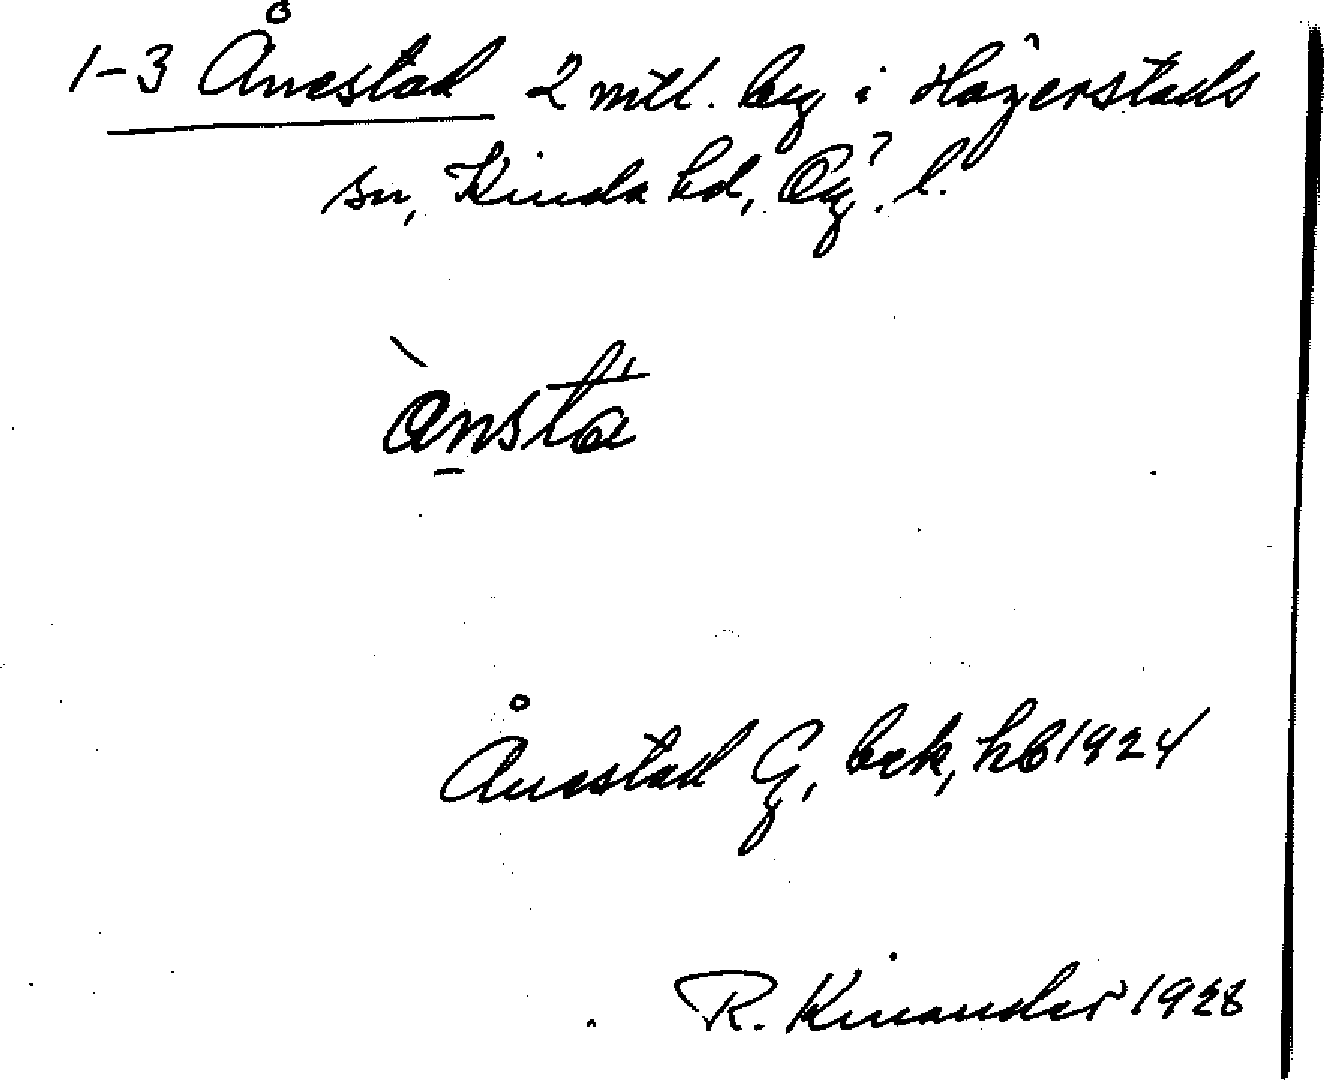 1-3 Ånestad 2 mtl. by i Hägerstads
sn, Kinda hd, Ög. l.
ànstá
Ånestad G, bek, hb 1924
R. Kinander 1928